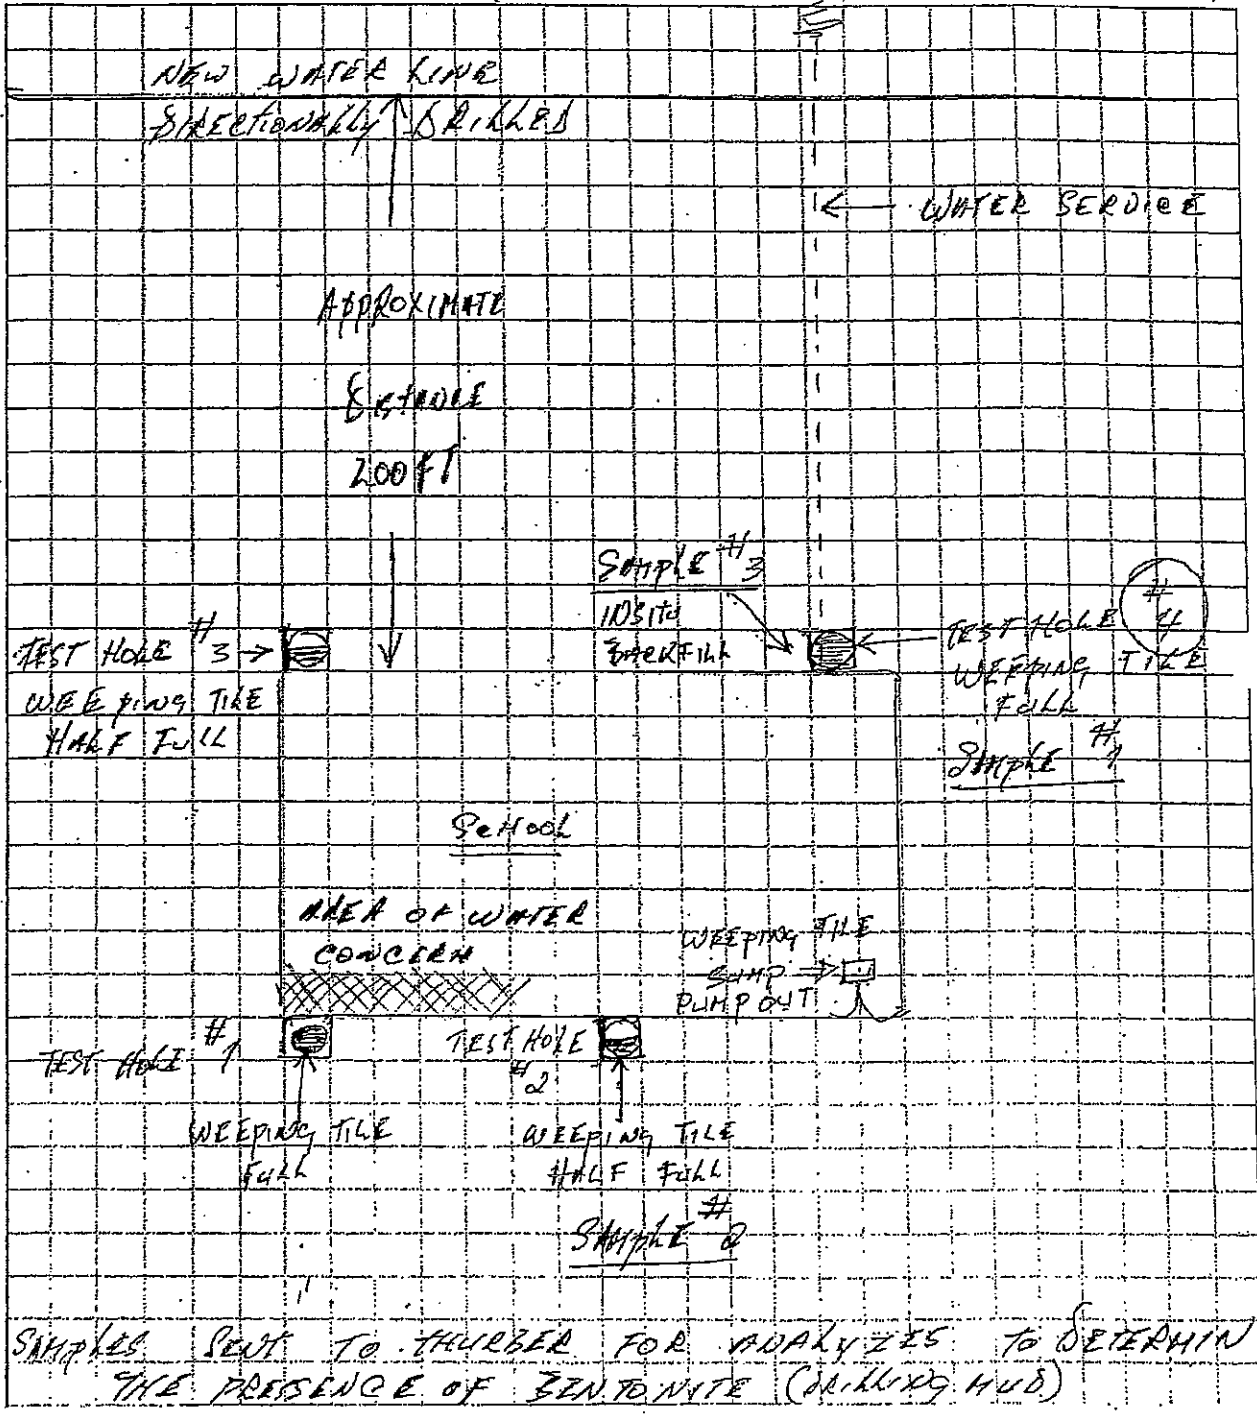 NEW WATER LINE
DIRECTIONALLY DRILLED
WATER SERVICE
APPROXIMATE
DISTANCE
200 FT
SAMPLE #3
INSITU
BACKFILL
TEST HOLE #3
WEEPING TILE
HALF FULL
TEST HOLE #4
WEEPING TILE
FULL
SAMPLE #1
SCHOOL
AREA OF WATER
CONCERN
WEEPING TILE
SUMP
PUMP OUT
TEST HOLE #1
WEEPING TILE
FULL
TEST HOLE
#2
WEEPING TILE
HALF FULL
SAMPLE #2
SAMPLES SENT TO THURBER FOR ANALYZES TO DETERMIN
THE PRESENCE OF BENTONITE (DRILLING MUD)